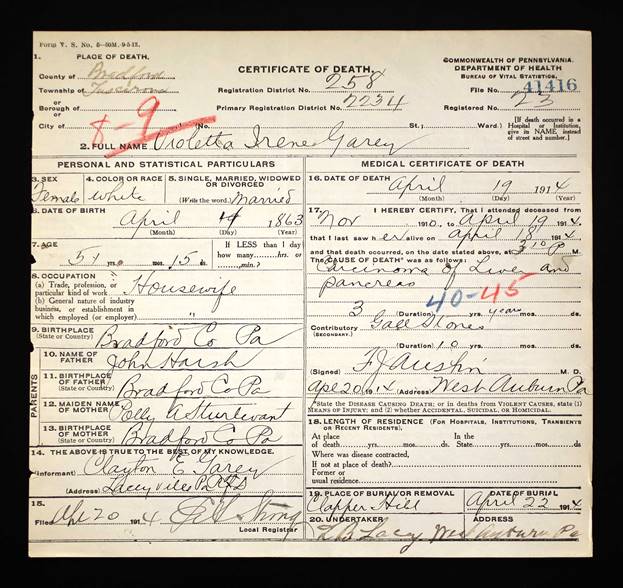 Form V. S. No. 5-50M. 9-5-13.
1. PLACE OF DEATH.
County of Bradford
Township of Tuscarora
or
Borough of
or
City of (No.
8-9
CERTIFICATE OF DEATH.
Registration District No. 258
Primary Registration District No. 7234
St.; Ward.)
COMMONWEALTH OF PENNSYLVANIA.
DEPARTMENT OF HEALTH
BUREAU OF VITAL STATISTICS.
File No. 41416
Registered No. 23
[If death occurred in a
Hospital or Institution,
give its NAME instead
of street and number.]
2. FULL NAME Violetta Irene Garey
PERSONAL AND STATISTICAL PARTICULARS
3. SEX
Female
4. COLOR OR RACE
White
5. SINGLE, MARRIED, WIDOWED
OR DIVORCED
(Write the word.) Married
6. DATE OF BIRTH
April 4 1863
(Month) (Day) (Year)
7. AGE
51 yrs. 0 mos. 15 ds.
If LESS than 1 day
how many hrs. or
min.?
8. OCCUPATION
(a) Trade, profession, or
particular kind of work
Housewife
(b) General nature of industry
business, or establishment in
which employed (or employer)
"
9. BIRTHPLACE
(State or Country)
Bradford Co Pa
PARENTS
10. NAME OF
FATHER
John Harsh
11. BIRTHPLACE
OF FATHER
(State or Country)
Bradford Co Pa
12. MAIDEN NAME
OF MOTHER
Polly A Sturdevant
13. BIRTHPLACE
OF MOTHER
(State or Country)
Bradford Co Pa
14. THE ABOVE IS TRUE TO THE BEST OF MY KNOWLEDGE.
(Informant) Clayton E. Garey
(Address) Laceyville Pa
15.
Filed Apr 20 1914
Local Registrar
MEDICAL CERTIFICATE OF DEATH
16. DATE OF DEATH
April 19 1914
(Month) (Day) (Year)
17. I HEREBY CERTIFY, That I attended deceased from
Nov 1910, to April 19 1914
that I last saw her alive on April 18 1914
and that death occurred, on the date stated above, at 3 10 P M.
The CAUSE OF DEATH* was as follows:
Carcinoma of Liver and
Pancreas
40-45
(Duration) 3 yrs. years mos. ds.
Contributory Gall Stones
(SECONDARY.)
(Duration) 10 yrs. mos. ds.
(Signed) F J Austin M. D.
Apr 20 1914 (Address) West Auburn Pa
*State the DISEASE CAUSING DEATH; or in deaths from VIOLENT CAUSES, state (1)
MEANS OF INJURY; and (2) whether ACCIDENTAL, SUICIDAL, OR HOMICIDAL.
18. LENGTH OF RESIDENCE (FOR HOSPITALS, INSTITUTIONS, TRANSIENTS
OR RECENT RESIDENTS).
At place In the
of death yrs. mos. ds. State yrs. mos. ds.
Where was disease contracted,
If not at place of death?
Former or
usual residence
19. PLACE OF BURIAL OR REMOVAL
Clapper Hill
DATE OF BURIAL
April 22 1914
20. UNDERTAKER
Lacy
ADDRESS
West Auburn Pa